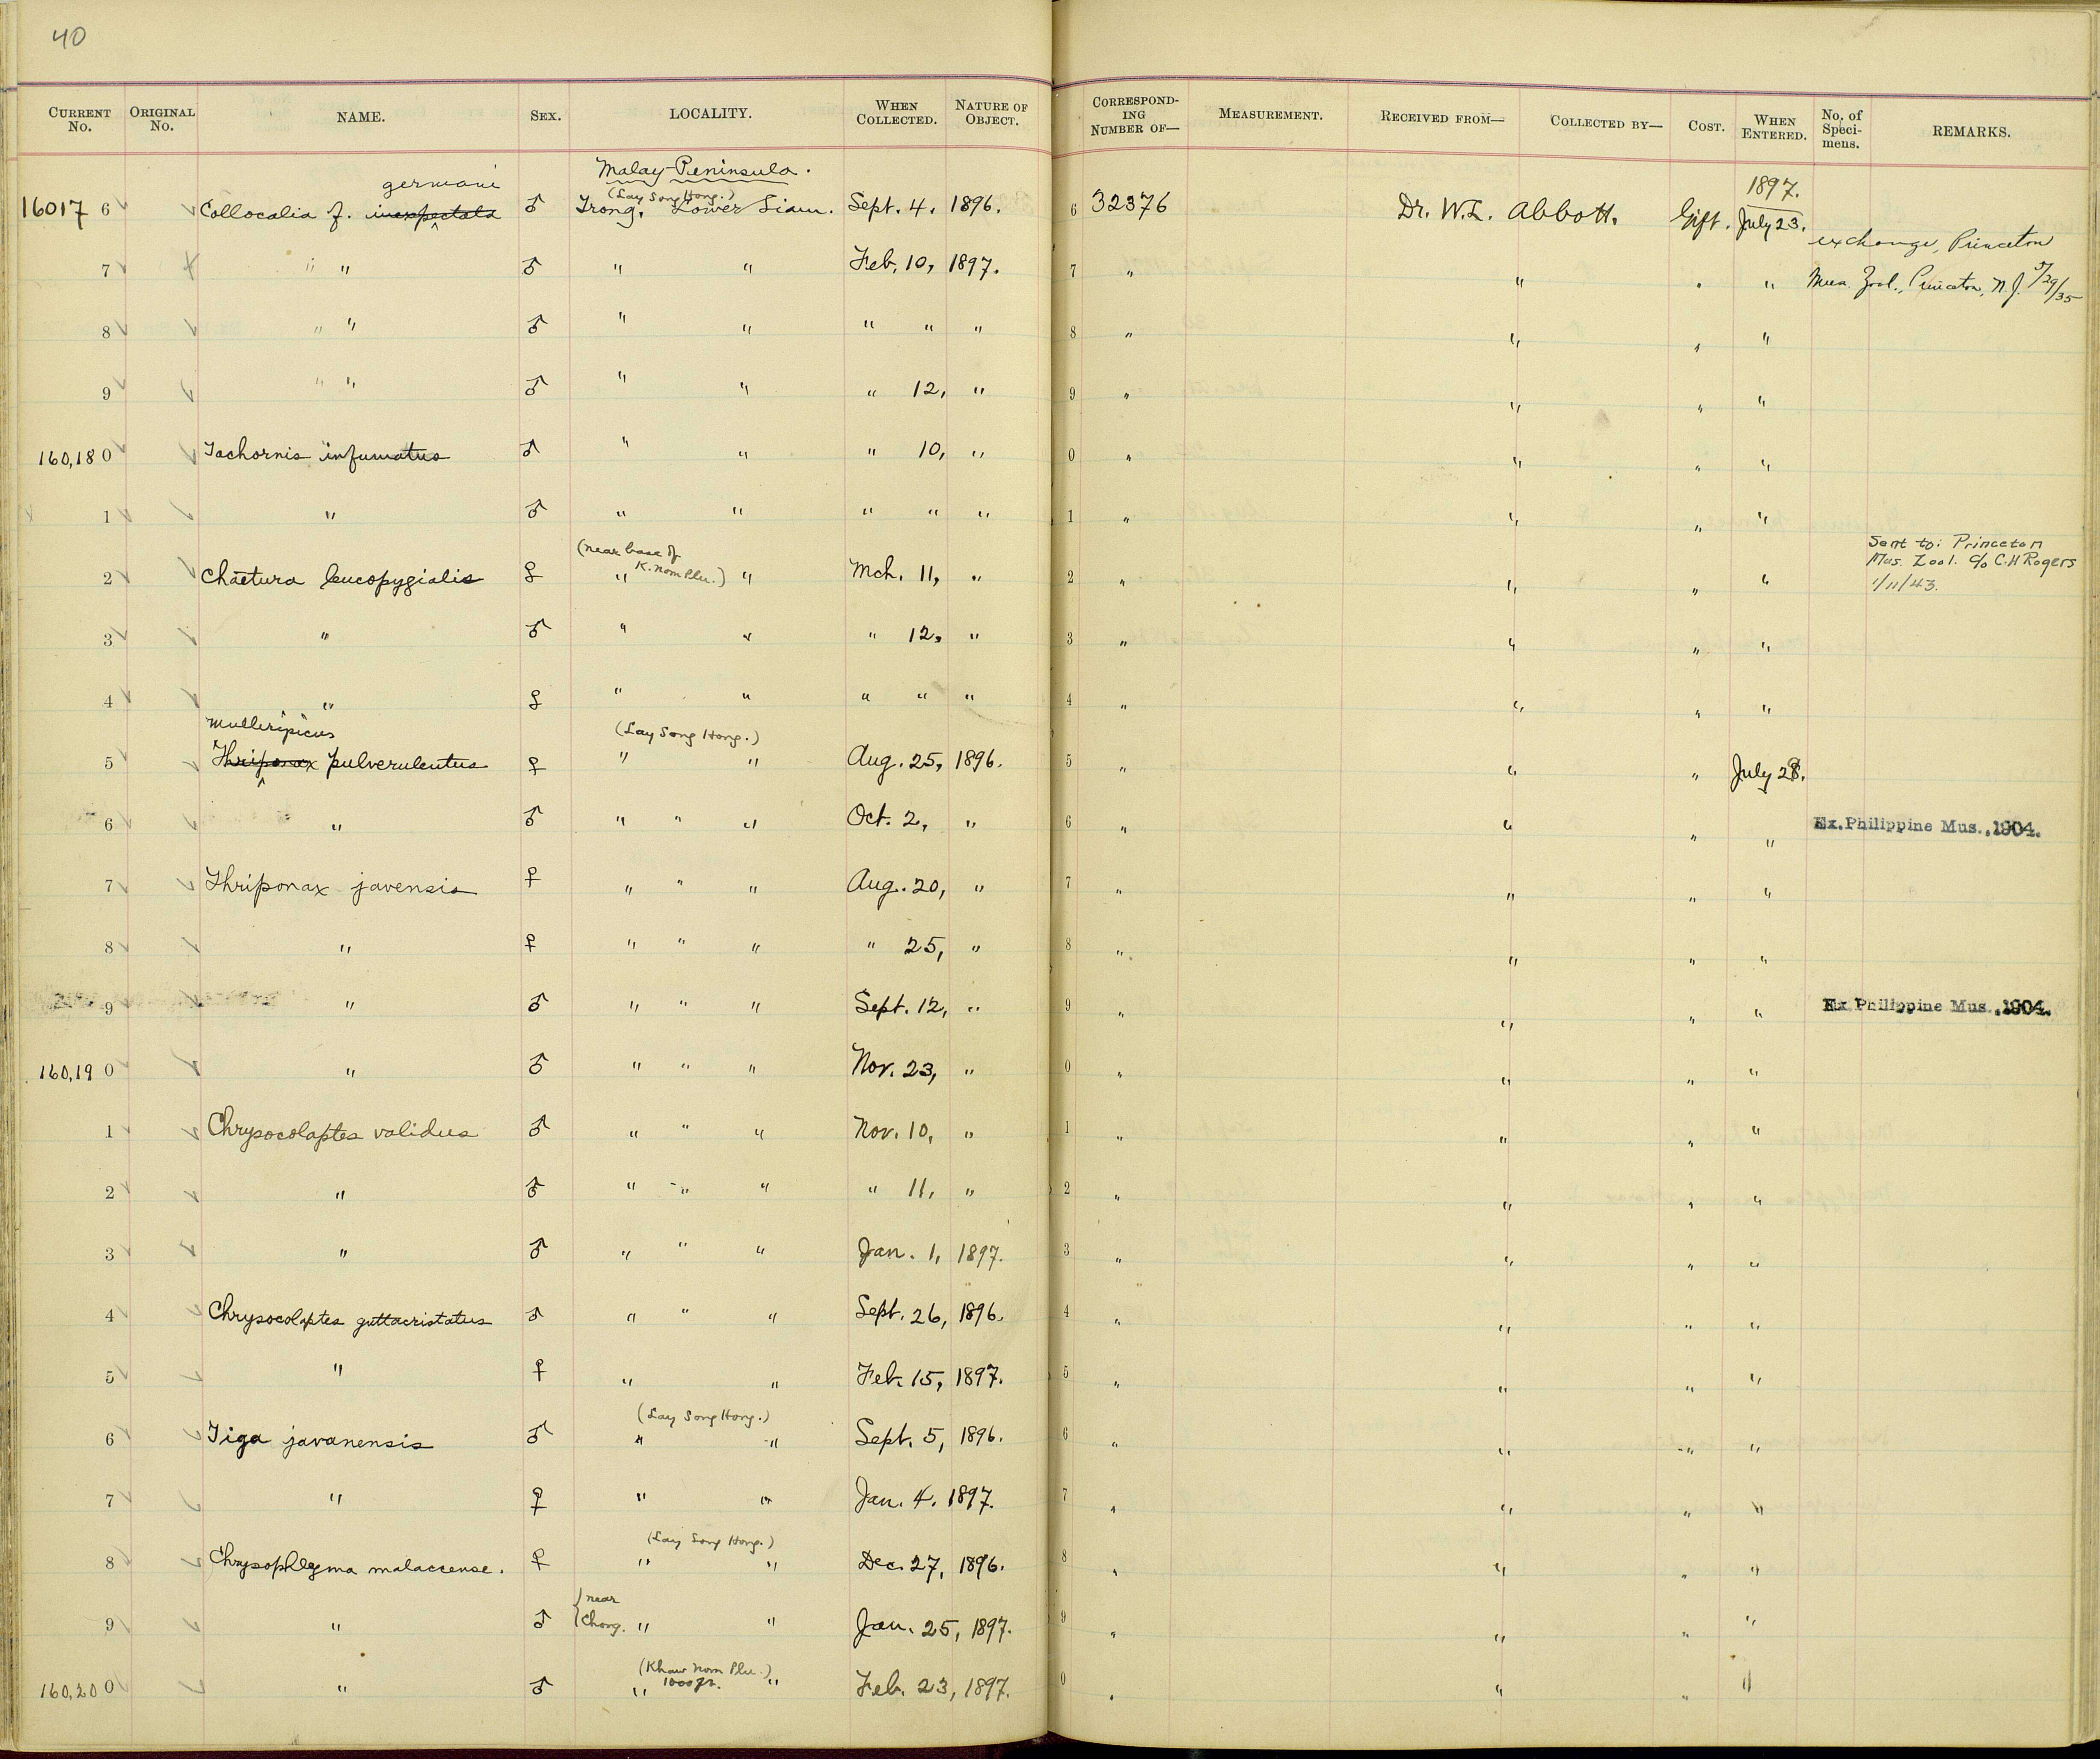 40
CURRENT No. ORIGINAL No. NAME. SEX. LOCALITY. WHEN COLLECTED. NATURE OF OBJECT. CORRESPONDING NUMBER OF— MEASUREMENT. RECEIVED FROM— COLLECTED BY— COST. WHEN ENTERED. No. of Specimens. REMARKS.
Malay Peninsula.
germani (Lay Song Hong.) 1897.
160176 Collocalia f. inexpectata ♂ Trong, Lower Siam. Sept. 4, 1896. 6 32376 Dr. W.L. Abbott. Gift. July 23.
exchange, Princeton
7 " " ♂ " " Feb. 10, 1897. 7 " " " " Mus. Zool., Princeton, N.J. 5/29/35
8 " " ♂ " " " " " 8 " " " "
9 " " ♂ " " " 12, " 9 " " " "
160,180 Tachornis infumatus ♂ " " " 10, " 0 " " " "
1 " ♂ " " " " " 1 " " " "
(near base of K. Nom Plu.) Sent to: Princeton
2 Chaetura leucopygialis ♀ " " Mch. 11, " 2 " " " " Mus. Zool. c/o C.H Rogers
1/11/43.
3 " ♂ " " " 12, " 3 " " " "
4 " ♀ " " " " " 4 " " " "
Mulleripicus (Lay Song Hong.)
5 Thriponax pulverulentus ♀ " " Aug. 25, 1896. 5 " " " July 28.
6 " ♂ " " " Oct. 2, " 6 " " " " Ex. Philippine Mus., 1904.
7 Thriponax javensis ♀ " " " Aug. 20, " 7 " " " "
8 " ♀ " " " " 25, " 8 " " " "
9 " ♂ " " " Sept. 12, " 9 " " " " Ex. Philippine Mus., 1904.
160,190 " ♂ " " " Nov. 23, " 0 " " " "
1 Chrysocolaptes validus ♂ " " " Nov. 10, " 1 " " " "
2 " ♂ " " " " 11, " 2 " " " "
3 " ♂ " " " Jan. 1, 1897. 3 " " " "
4 Chrysocolaptes guttacristatus ♂ " " " Sept. 26, 1896. 4 " " " "
5 " ♀ " " Feb. 15, 1897. 5 " " " "
(Lay Song Hong.)
6 Tiga javanensis ♂ " " Sept. 5, 1896. 6 " " " "
7 " ♀ " " Jan. 4. 1897. 7 " " " "
(Lay Song Hong.)
8 Chrysophlegma malaccense. ♀ " " Dec. 27, 1896. 8 " " " "
near
9 " ♂ Chong. " " Jan. 25, 1897. 9 " " " "
(Khaw Nom Plu.)
160,200 " ♂ " 1000 ft. " Feb. 23, 1897. 0 " " " "